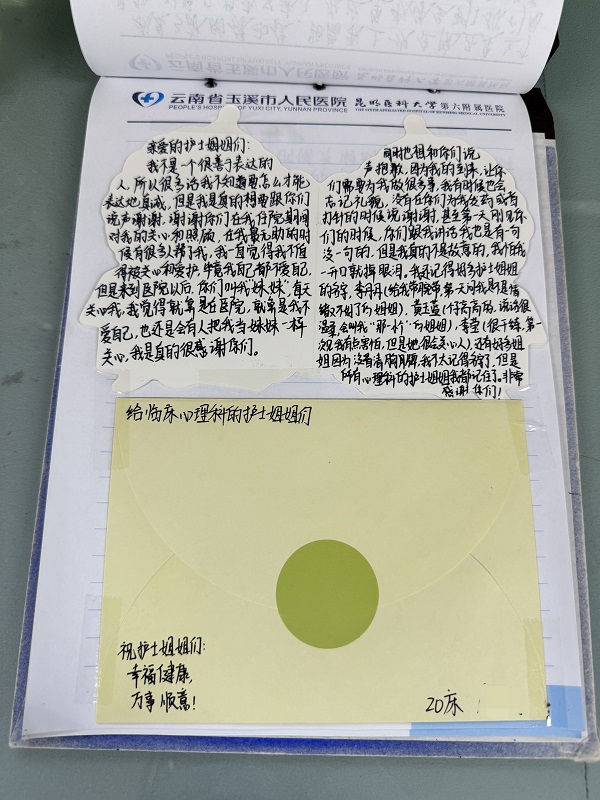 云南省玉溪市人民医院
PEOPLE'S HOSPITAL OF YUXI CITY, YUNNAN PROVINCE
昆明医科大学第六附属医院
THE SIXTH AFFILIATED HOSPITAL OF KUNMING MEDICAL UNIVERSITY
亲爱的护士姐姐们：
我不是一个很善于表达的
人，所以很多话我不知道要怎么才能
表达地真诚，但是我是真的想要跟你们
说声谢谢。谢谢你们在我住院期间
对我的关心和照顾，在我最无助的时
候有很多人帮了我，我一直觉得我不值
得被关心和爱护，毕竟我自己都不爱自己，
但是来到医院以后，你们叫我“妹妹”，每天
关心我，我觉得就算是在医院，就算是我不
爱自己，也还是会有人把我当妹妹一样
关心，我是真的很感谢你们。
同时也想和你们说
声抱歉，因为我的到来，让你
们需要为我做很多事，我有时候也会
忘记礼貌，没有在你们为我发药或者
打针的时候说谢谢，甚至第一天刚见你
们的时候，你们跟我讲话我也是有一
句没一句的，但是我真的不是故意的，我怕我
一开口就掉眼泪，我还记得好多护士姐姐
的名字，李月月（给我带腕带，第一天问我是不是情
绪不好了的姐姐），黄玉莲（个子高高的，说话很
温柔，会叫我“
的姐姐），
（很干练，第一
次见我有点害怕，但是她很会关心人），还有好多姐
姐因为没看清胸牌，我不太记得名字了，但是
所有心理科的护士姐姐我都记住了。非常
感谢你们！
给临床心理科的护士姐姐们
祝护士姐姐们：
幸福健康，
万事顺意！
20床